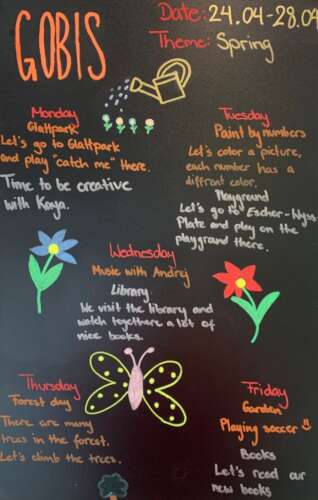 GOBIS
Date: 24.04-28.04
Theme: Spring
Monday
Glattpark
Let's go to Glattpark
and play "catch me" there.
Time to be creative
with Kaya.
Tuesday
Paint by numbers
Let's color a picture,
each number has a
diffrent color.
Playground
Let's go to Escher-Wyss-
Plate and play on the
playground there.
Wednesday
Music with Andrej
Library
We visit the library and
watch togethere a lot of
nice books.
Thursday
Forest day
There are many
trees in the forest.
Let's climb the trees.
Friday
Garden
Playing soccer
Books
Let's read our
new books